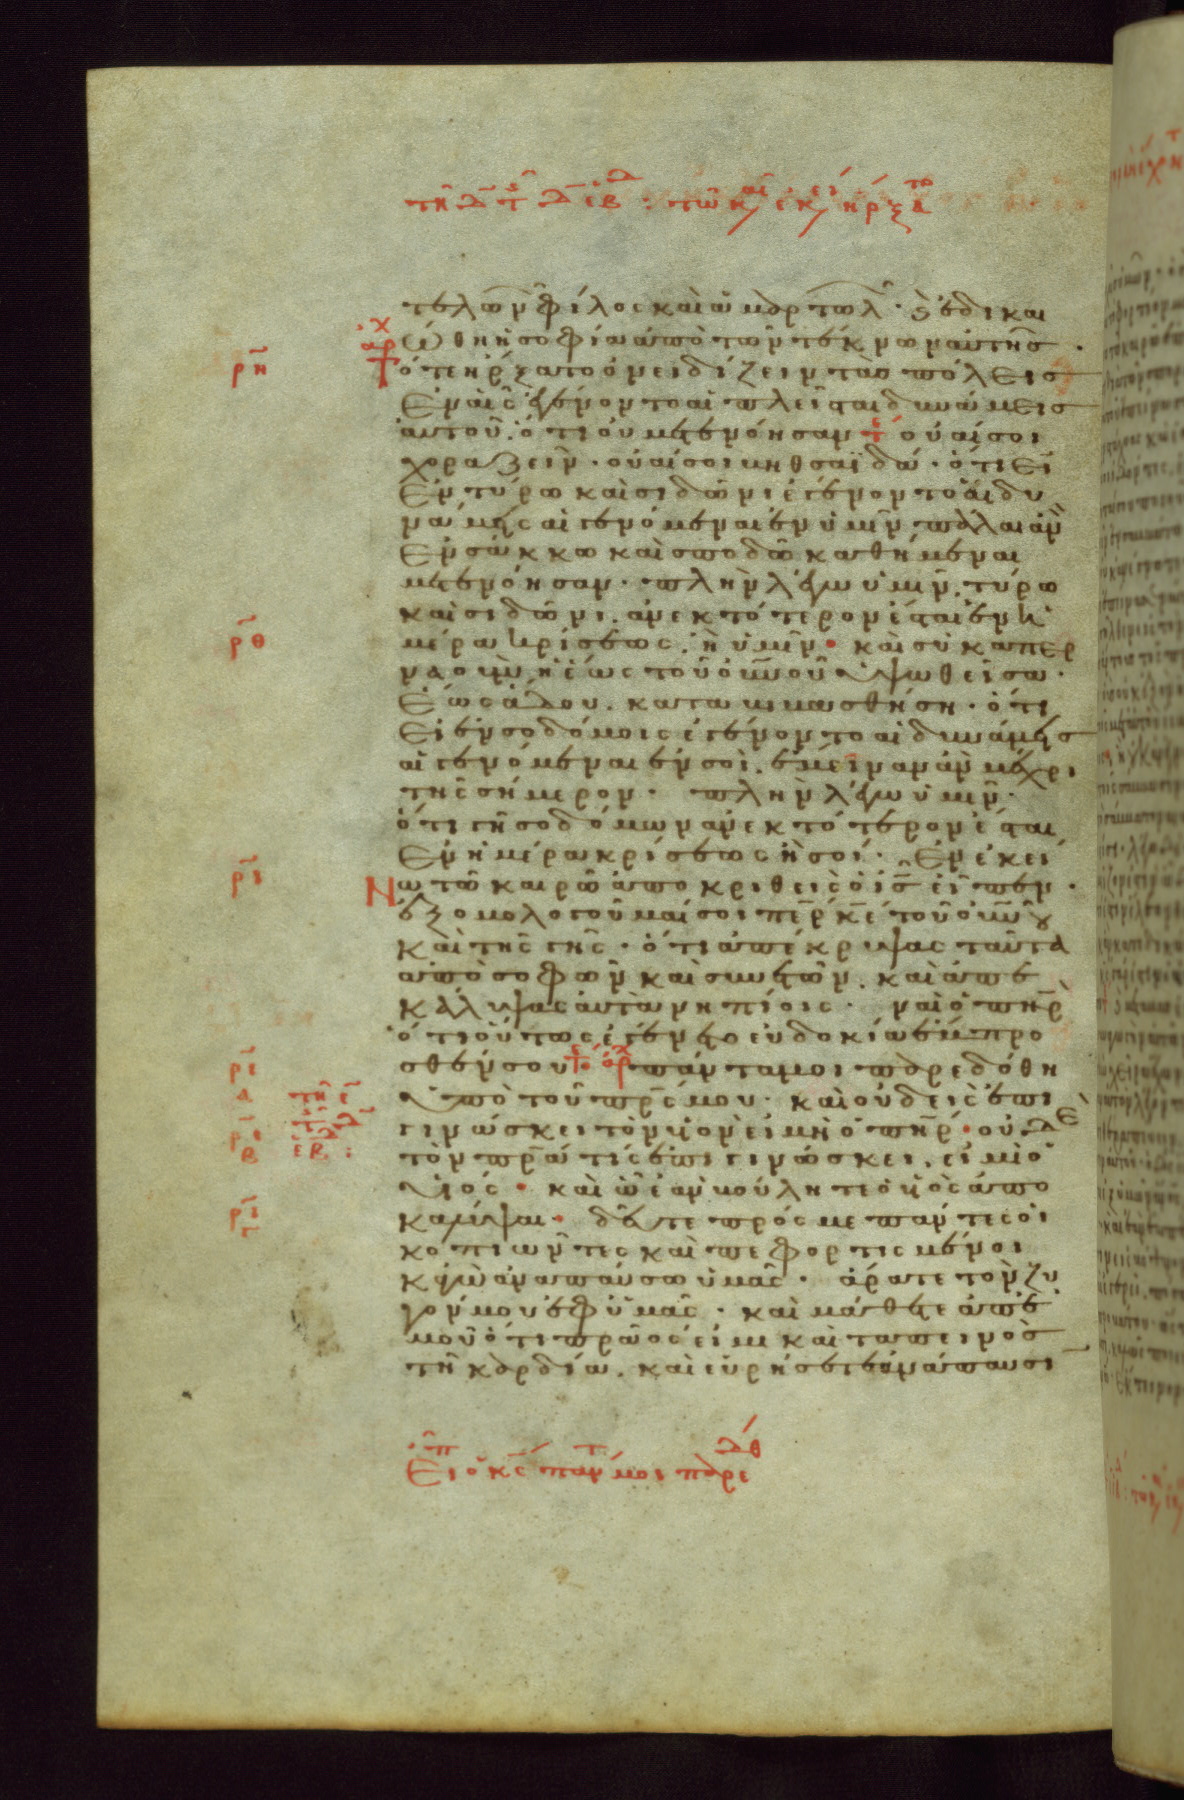 τῇ δ τῆς δ ἑβδ : τῷ κ,αι ἐκει, ἤρξατο
τελωνῶν φίλος καὶ ἁμαρτωλῶν· καὶ ἐδικαι
ώθη ἡ σοφία ἀπὸ τῶν τέκνων αὐτῆς·
αρχ
ρη
ότε ἤρξατο ὀνειδίζειν τὰς πόλεις
ἐν αἷς ἐγένοντο αἱ πλεῖσται δυνάμεις
αὐτοῦ, ὅτι οὐ μετενόησαν τε οὐαί σοι
χοραζείν· οὐαί σοι βηθσαϊδά· ὅτι εἰ
ἐν τύρω καὶ σιδῶνι ἐγένοντο αἱ δυ
νάμεις αἱ γενόμεναι ἐν ὑμῖν πάλαι ἂν
ἐν σάκκω καὶ σποδῶ καθήμεναι
μετενόησαν· πλὴν λέγω ὑμῖν, τύρω
καὶ σιδῶνι, ἀνεκτότερον ἔσται ἐν ἡ
ρθ
μέρα κρίσεως, ἢ ὑμῖν· καὶ σὺ καπερ
ναοὺμ ἡ ἕως τοῦ οὐνοῦ ὑψωθεῖσα·
ἕως ἅδου, καταβιβασθήση· ὅτι
εἰ ἐν σοδόμοις ἐγένοντο αἱ δυνάμεις
αἱ γενόμεναι ἐν σοὶ, ἔμειναν ἂν μέχρι
τῆς σήμερον· πλὴν λέγω ὑμῖν·
ὅτι γῆ σοδόμων ἀνεκτότερον ἔσται
ἐν ἡμέρα κρίσεως ἢ σοί· Ἐν ἐκεί
ρι
νω τῶ καιρῶ ἀποκριθεὶς ὁ ις εἶπεν·
ἐξομολογοῦμαί σοι περ κε τοῦ οὐνοῦ
καὶ τῆς γῆς· ὅτι ἀπέκρυψας ταῦτα
ἀπὸ σοφῶν καὶ συνετῶν, καὶ ἀπε
κάλυψας αὐτὰ νηπίοις· ναὶ ὁ πηρ
ὅτι οὕτως ἐγένετο εὐδοκία ἔμπρο
ρι
α
σθέν σου τε αρχ πάντα μοι παρεδόθη
τῇ ε
τῆς δ
ἑβδ :
ὑπὸ τοῦ πρς μου· καὶ οὐδεὶς ἐπι
ρι
β
γινώσκει τὸν υἱὸν εἰ μὴ ὁ πηρ· οὐδὲ
τὸν πρα τίς ἐπιγινώσκει, εἰ μὴ ὁ
υἱός· καὶ ὧ ἐὰν βούληται ὁ υἱὸς ἀπο
ρι
γ
καλύψαι· δεῦτε πρός με πάντες οἱ
κοπιῶντες καὶ πεφορτισμένοι
κἀγὼ ἀναπαύσω ὑμᾶς· ἄρατε τὸν ζυ
γόν μου ἐφ ὑμᾶς· καὶ μάθετε ἀπ ἐ
μοῦ ὅτι πρᾶός εἰμι καὶ ταπεινὸς
τῆ καρδία, καὶ εὑρήσετε ἀνάπαυσι
Εἶπ ὁ κς πάντ μοι παρεδόθ